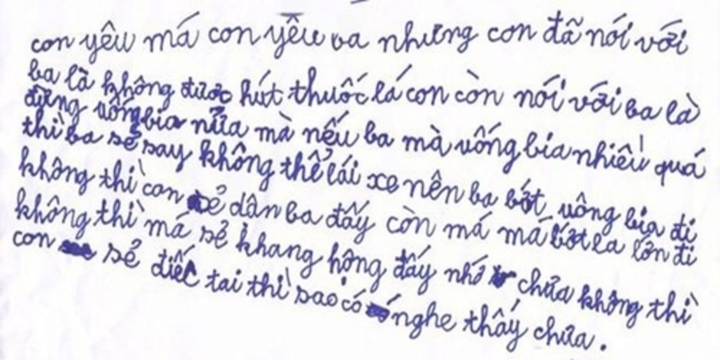 con yêu má con yêu ba nhưng con đã nói với
ba là không được hút thuốc lá con còn nói với ba là
đừng uống bia nữa mà nếu ba mà uống bia nhiều quá
thì ba sẻ say không thể lái xe nên ba bớt uông bia đi
không thì con sẻ dân ba đấy còn má má bớt la lớn đi
không thì má sẻ khang họng đấy nhớ chưa không thì
con sẻ điếc tai thì sao có nghe thấy chưa.